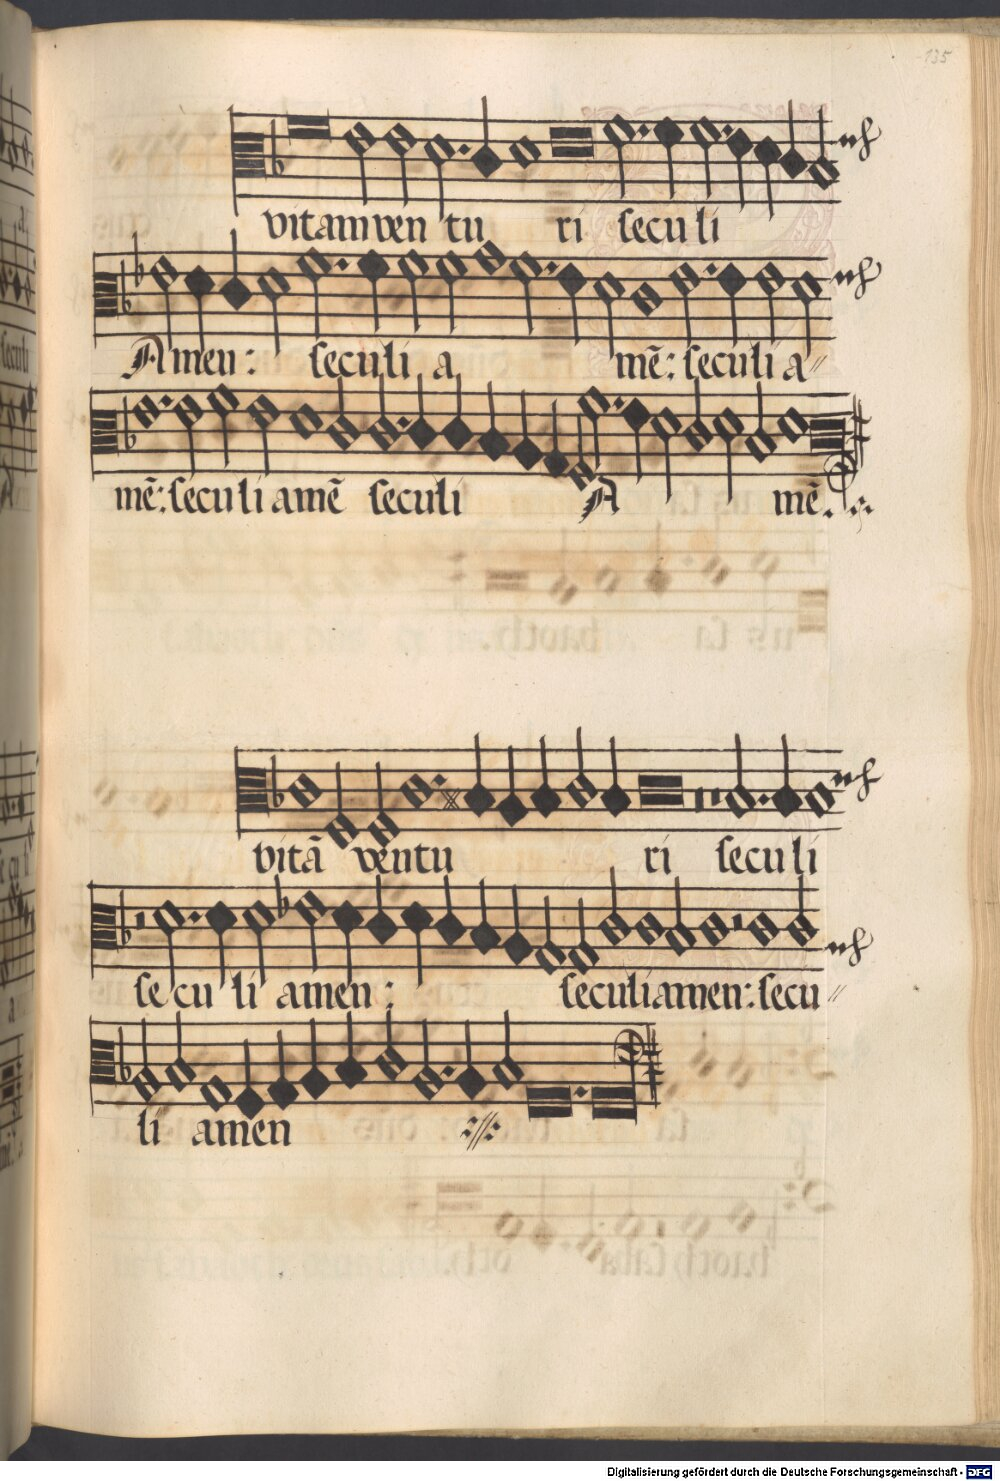 135
vitam ven tu ri seculi
Amen: seculi a mē: seculi a
mē: seculi amē seculi A mē.
vitā ventu ri seculi
seculi amen: seculi amen: secu
li amen
Digitalisierung gefördert durch die Deutsche Forschungsgemeinschaft - DFG